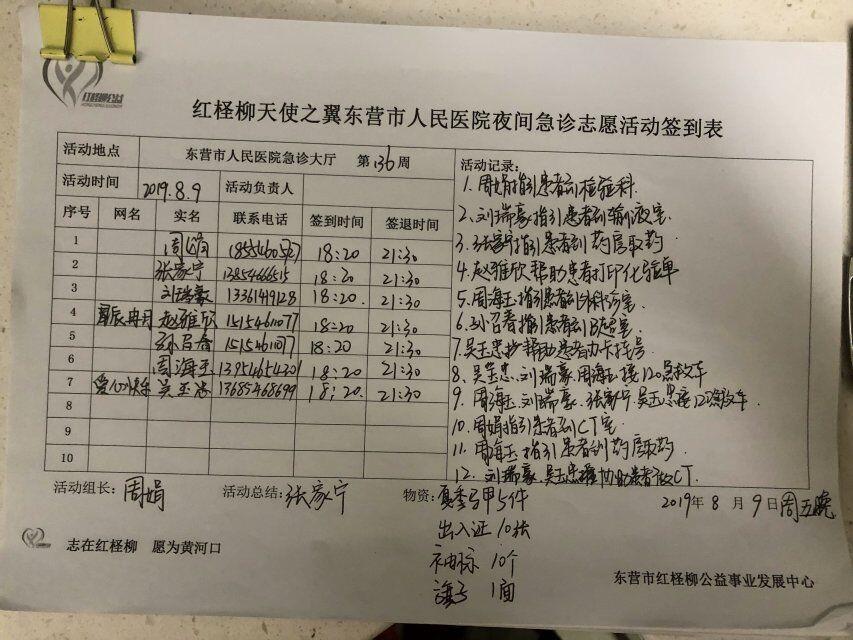 红柽柳公益
红柽柳天使之翼东营市人民医院夜间急诊志愿活动签到表
活动地点 东营市人民医院急诊大厅 第136周
活动时间 2019.8.9 活动负责人
序号 网名 实名 联系电话 签到时间 签退时间
1 周娟 18:20 21:30
2 张家宁 18:20 21:30
3 刘瑞豪 18:20 21:30
4 赵雅欣 15154611077 18:20 21:30
5 孙召春 15154611077 18:20 21:30
6 周海玉 18:20 21:30
7 吴玉忠 13685468699 18:20 21:30
8
9
10
活动记录:
1. 周娟指引患者到检验科.
2. 刘瑞豪指引患者到输液室.
3. 张家宁指引患者到药房取药
4. 赵雅欣帮助患者打印化验单
5. 周海玉指引患者到外科诊室.
6. 孙召春指引患者到
7. 吴玉忠帮助患者办卡挂号
8. 吴玉忠、刘瑞豪、周海玉接120急救车
9. 周海玉、刘瑞豪、张家宁、吴玉忠接120急救车.
10. 周娟指引患者到CT室.
11. 周海玉指引患者到药房取药.
12. 刘瑞豪、吴玉忠协助患者做CT.
活动组长: 周娟 活动总结: 张家宁 物资: 夏季马甲5件
出入证 10张
袖标 10个
1面
2019年8月9日周五晚
志在红柽柳 愿为黄河口
东营市红柽柳公益事业发展中心